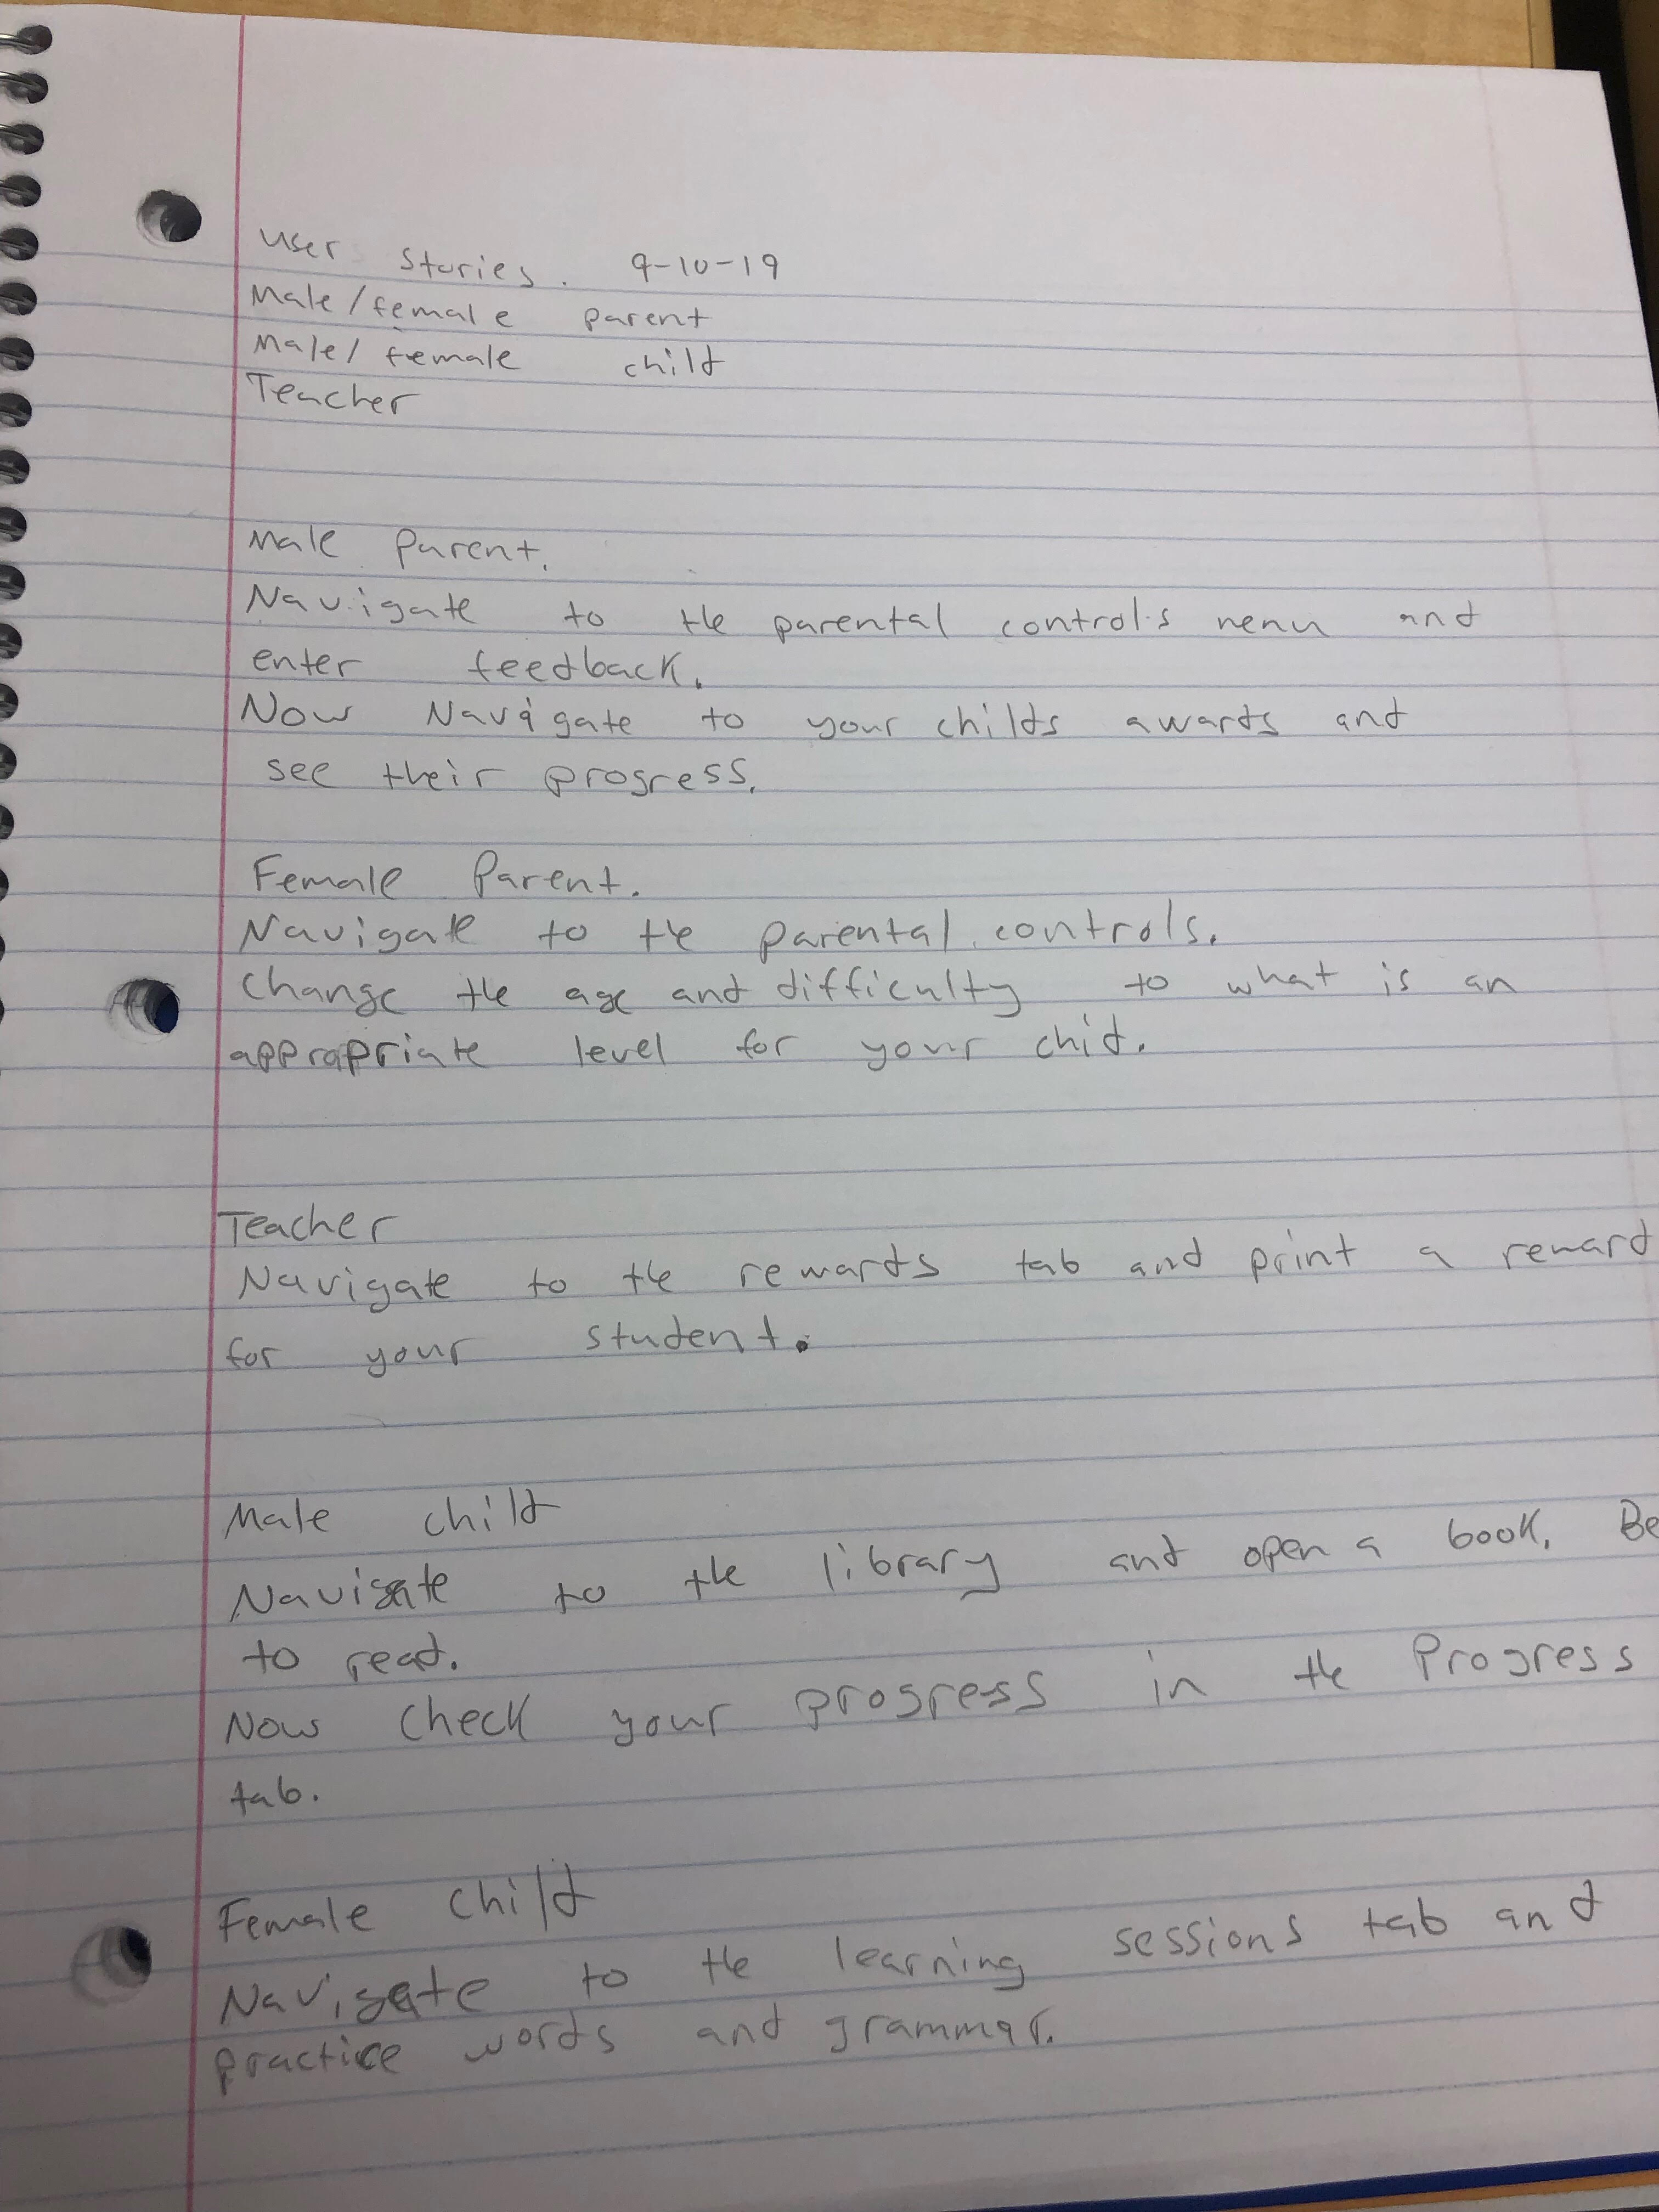 User Stories. 9-10-19
Male/female parent
Male/female child
Teacher
Male Parent.
Navigate to the parental controls menu and
enter feedback.
Now Navigate to your childs awards and
see their progress.
Female Parent.
Navigate to the parental controls.
Change the age and difficulty to what is an
appropriate level for your chid.
Teacher
Navigate to the rewards tab and print a reward
for your student.
Male child
Navigate to the library and open a book. Be
to read.
Now check your progress in the Progress
tab.
Female Child
Navigate to the learning sessions tab and
practice words and grammar.